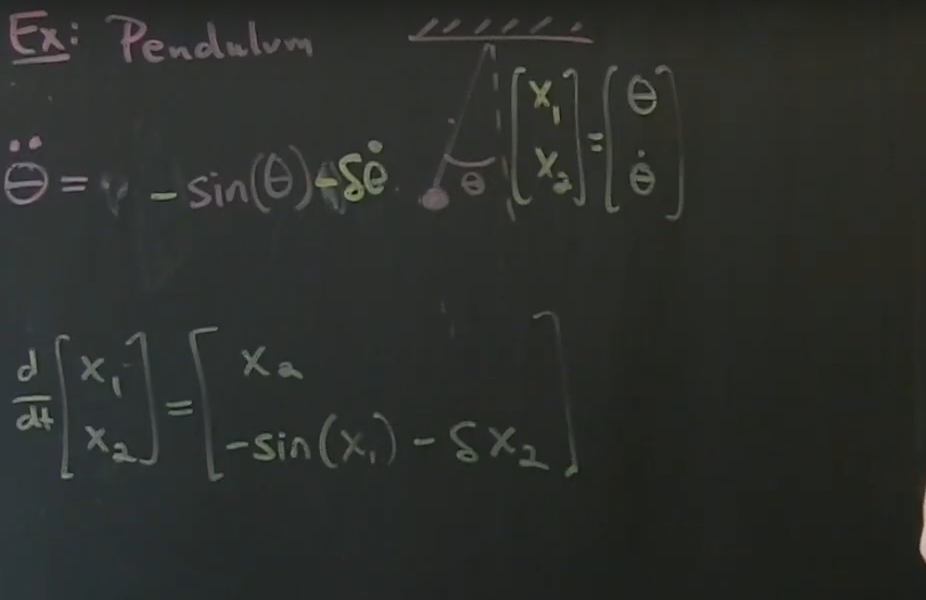 Ex: Pendulum
θ̈ = - sin(θ) - δθ̇
θ
[x₁ x₂] = [θ θ̇]
d/dt [x₁ x₂] = [x₂ -sin(x₁) - δx₂]